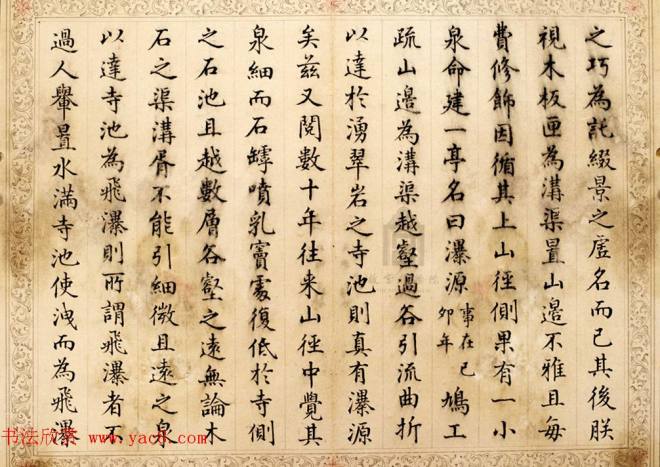 之巧為託綴景之虛名而已其後朕
視木板匣為溝渠置山邊不雅且每
費修飾因循其上山徑側果有一小
泉命建一亭名曰瀑源事在己卯年鳩工
疏山邊為溝渠越壑過谷引流曲折
以達於湧翠岩之寺池則真有瀑源
矣茲又閱數十年往来山徑中覺其
泉細而石罅噴乳竇處復低於寺側
之石池且越數層谷壑之遠無論木
石之渠溝胥不能引細微且遠之泉
以達寺池為飛瀑則所謂飛瀑者不
過人舉置水滿寺池使洩而為飛瀑
书法欣赏 www.yac8.com